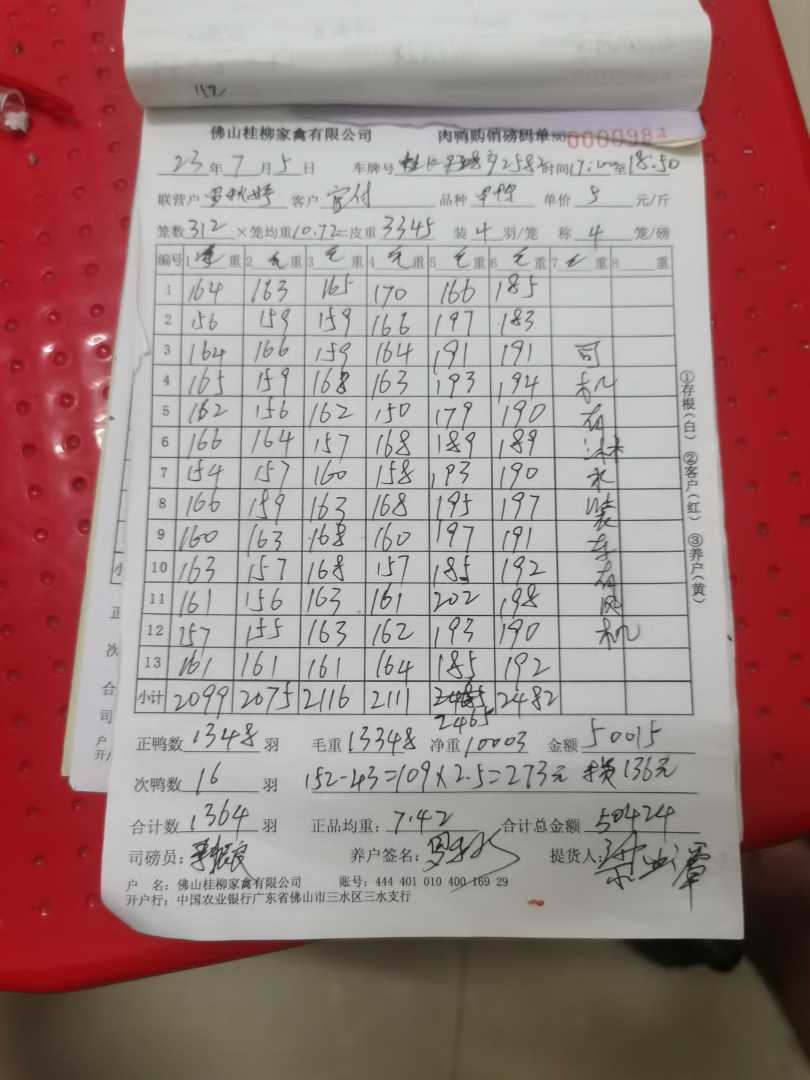 152
佛山桂柳家禽有限公司 肉鸭购销磅码单 NO 0000984
23年7月5日 车牌号 92582 时间17:00至18:50
联营户 罗秋婷 客户 宜付 品种 单价 5 元/斤
笼数312×笼均重10.72=皮重3345 装4羽/笼 称4笼/磅
编号 1毛重 2毛重 3毛重 4毛重 5毛重 6毛重 7毛重 8 重
1 164 163 165 170 166 185
2 156 159 159 166 197 183
3 164 166 159 164 191 191 司
4 165 159 168 163 193 194 机
5 162 156 162 150 179 190 有
6 166 164 157 168 189 189 淋
7 154 157 160 158 193 190 水
8 166 159 163 168 195 197 装
9 160 163 168 160 197 191 车
10 163 157 168 157 185 192 有
11 161 156 163 161 202 198 风
12 157 155 163 162 193 190 机
13 161 161 161 164 185 192
小计 2099 2075 2116 2111 2485 2482
2465
正鸭数 1348 羽 毛重 13348 净重 10003 金额 50015
次鸭数 16 羽 152-43=109×2.5=273元 损136元
合计数 1364 羽 正品均重: 7.42 合计总金额 50424
司磅员: 养户签名: 提货人:
户 名: 佛山桂柳家禽有限公司 账号: 444 401 010 400 169 29
开户行: 中国农业银行广东省佛山市三水区三水支行
①存根(白) ②客户(红) ③养户(黄)